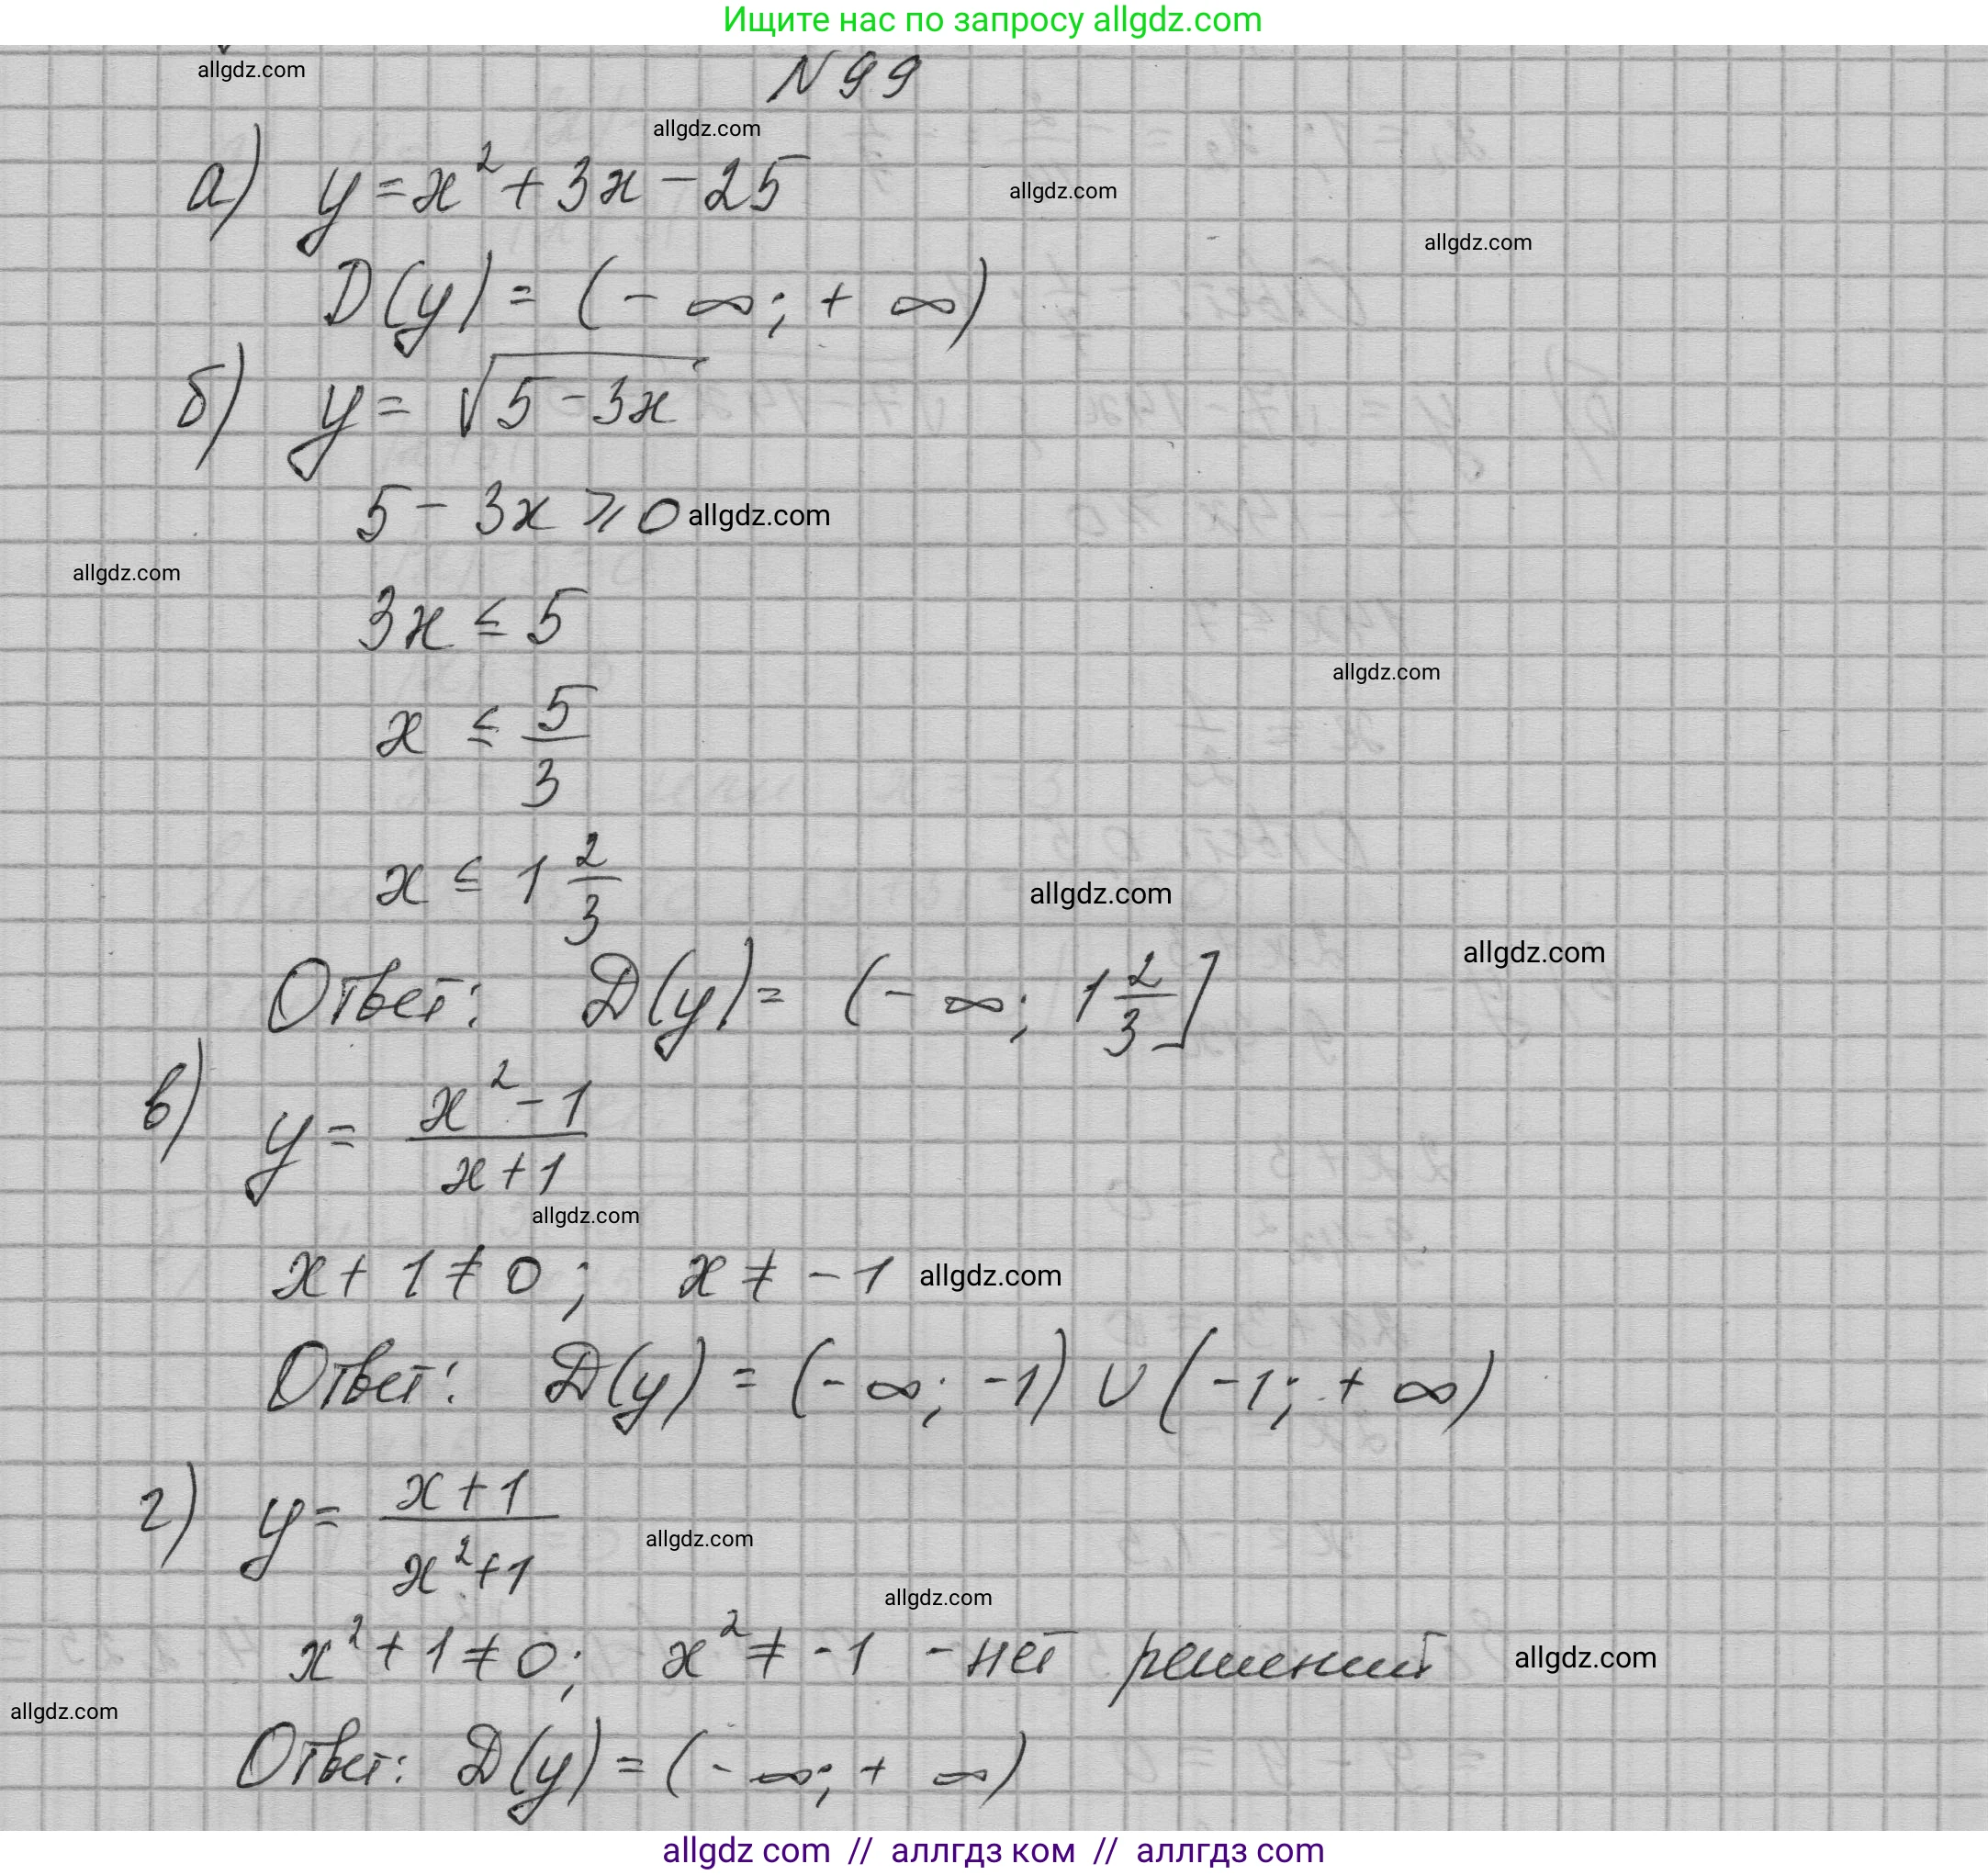 Ищите нас по запросу allgdz.com
allgdz.com
N 99
allgdz.com
а) y = x² + 3x - 25
allgdz.com
allgdz.com
D(y) = (- ∞; + ∞)
б) y = √(5 - 3x)
5 - 3x ⩾ 0 allgdz.com
allgdz.com
3x ≤ 5
allgdz.com
x ≤ 5/3
x ≤ 1 2/3
allgdz.com
allgdz.com
Ответ: D(y) = (- ∞; 1 2/3]
в) y = (x² - 1)/(x + 1)
allgdz.com
x + 1 ≠ 0; x ≠ - 1 allgdz.com
Ответ: D(y) = (- ∞; -1) ∪ (-1; + ∞)
г) y = (x + 1)/(x² + 1)
allgdz.com
allgdz.com
x² + 1 ≠ 0; x² ≠ - 1 - нет решений allgdz.com
allgdz.com
Ответ: D(y) = (- ∞; + ∞)
allgdz com // аллгдз ком // аллгдз com